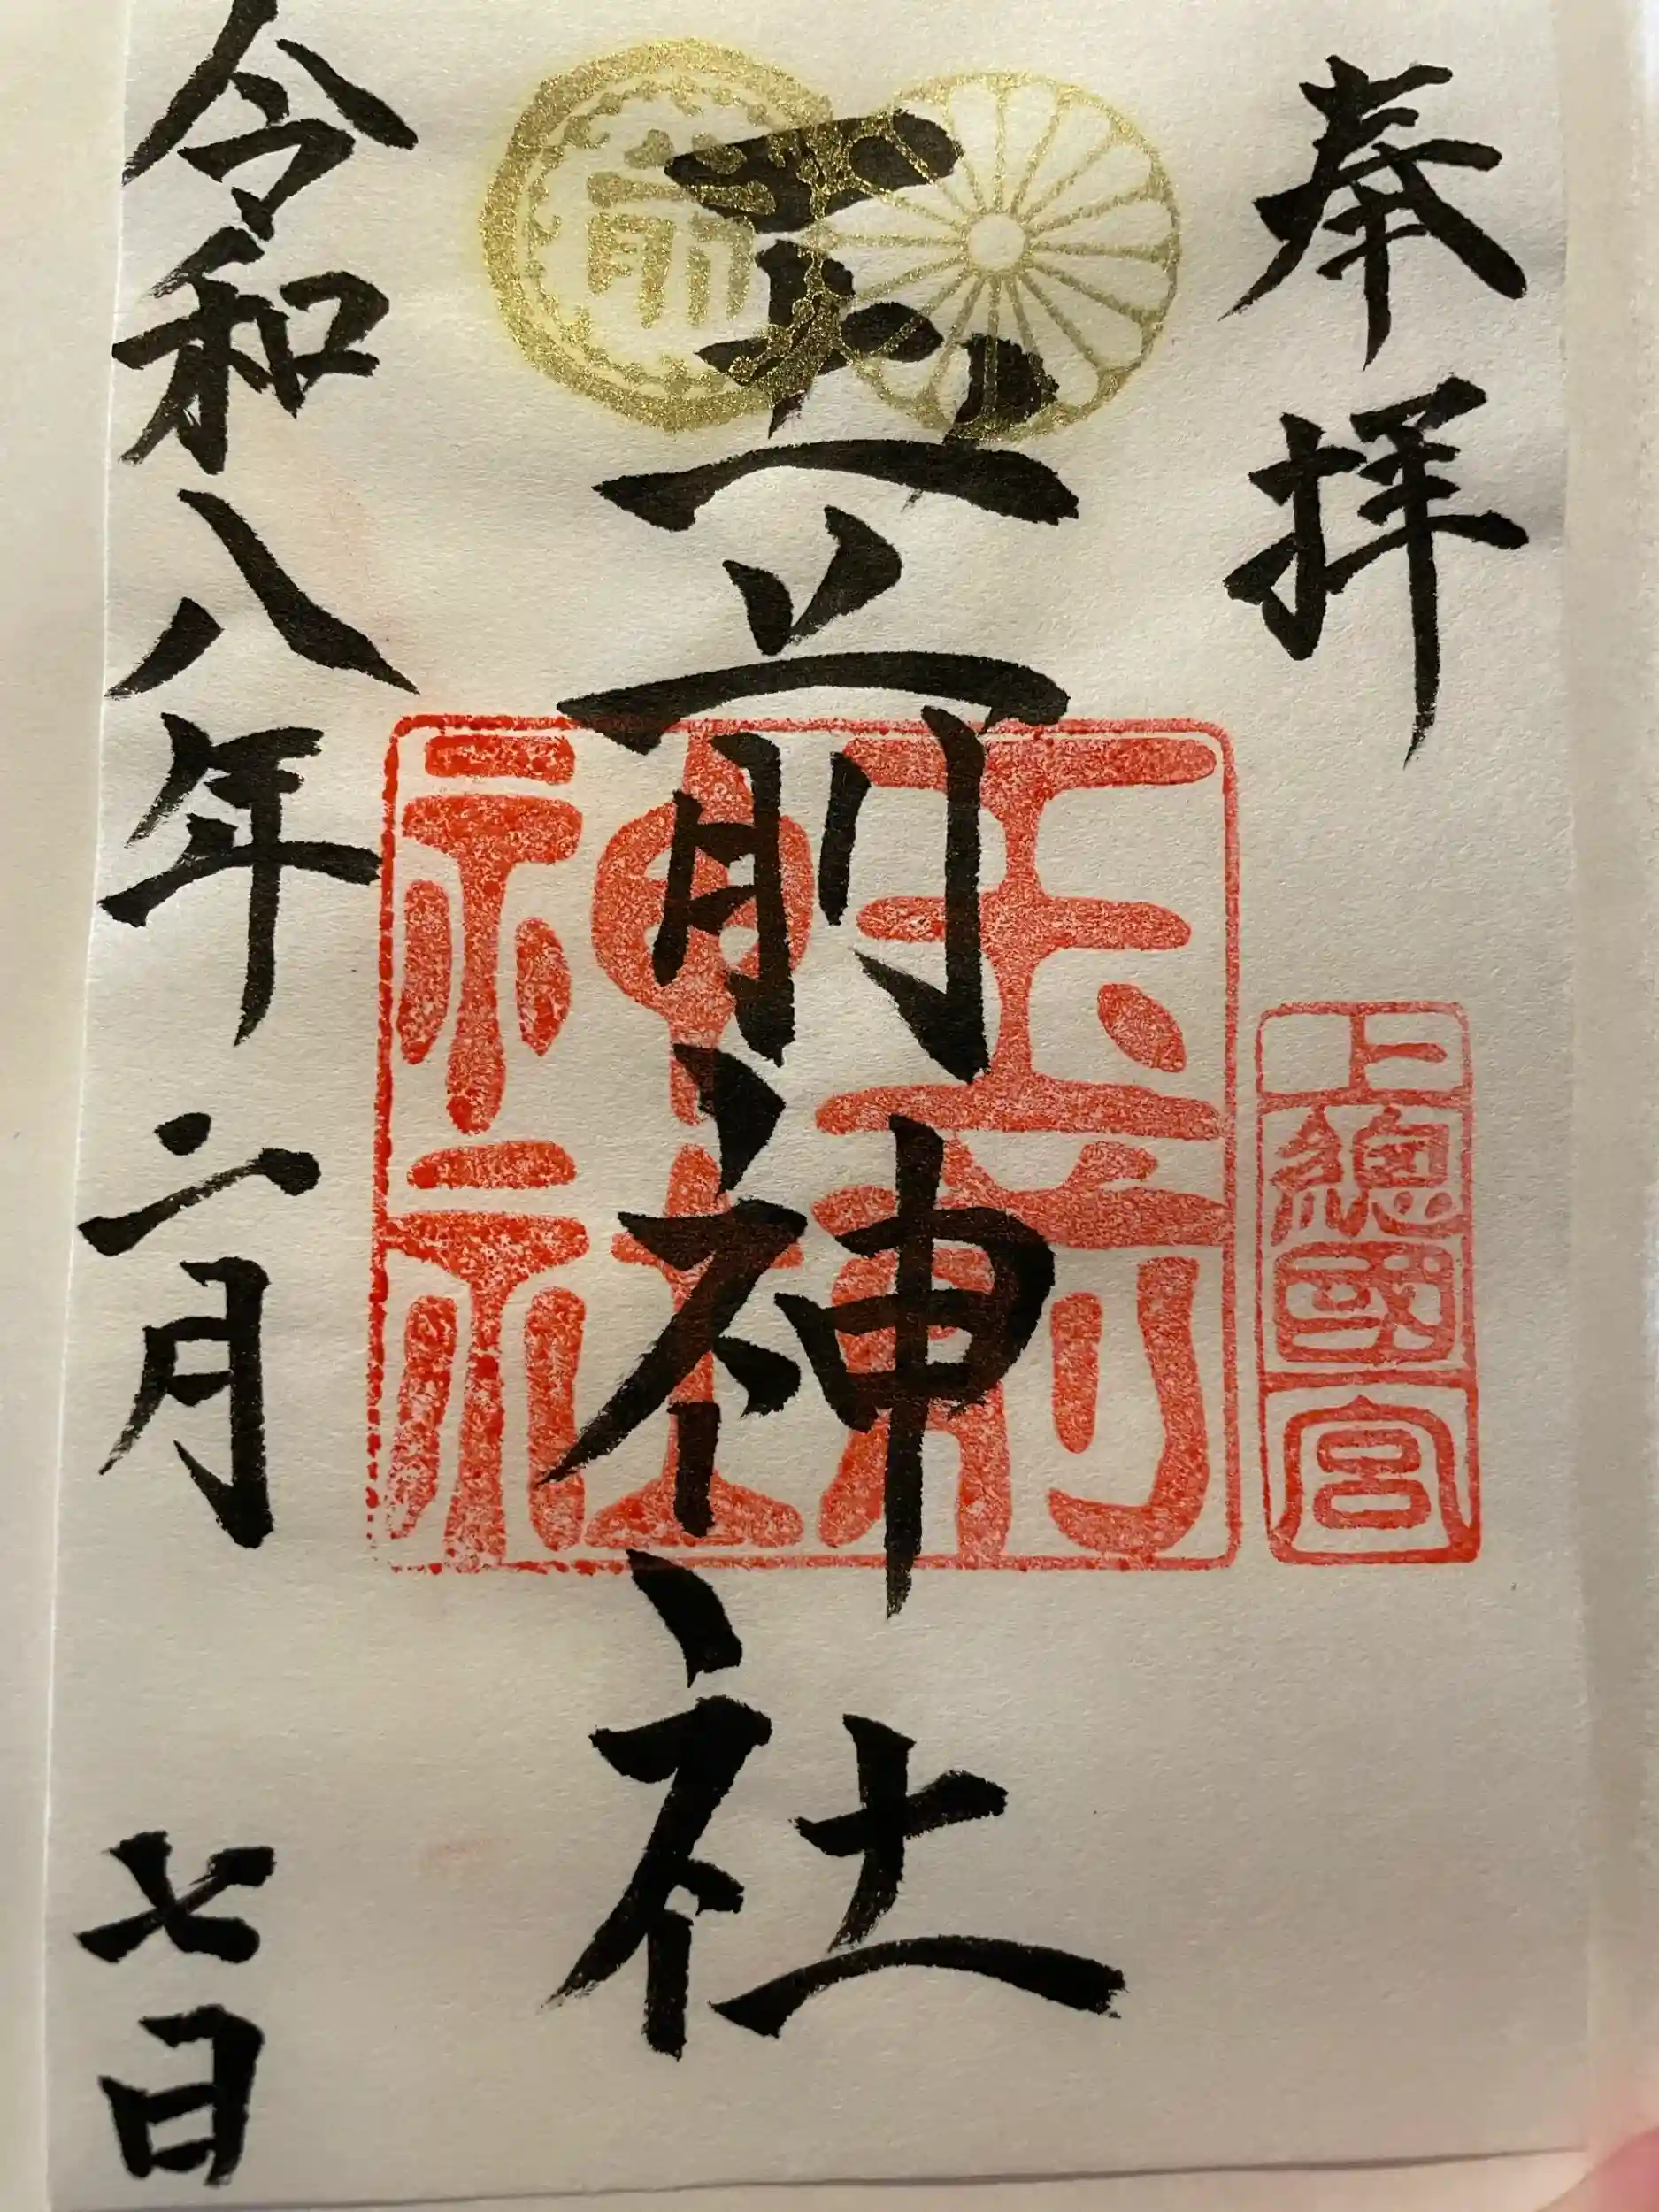 奉拝
上總國一宮
前
玉前神社
玉前神社
令和八年二月七日